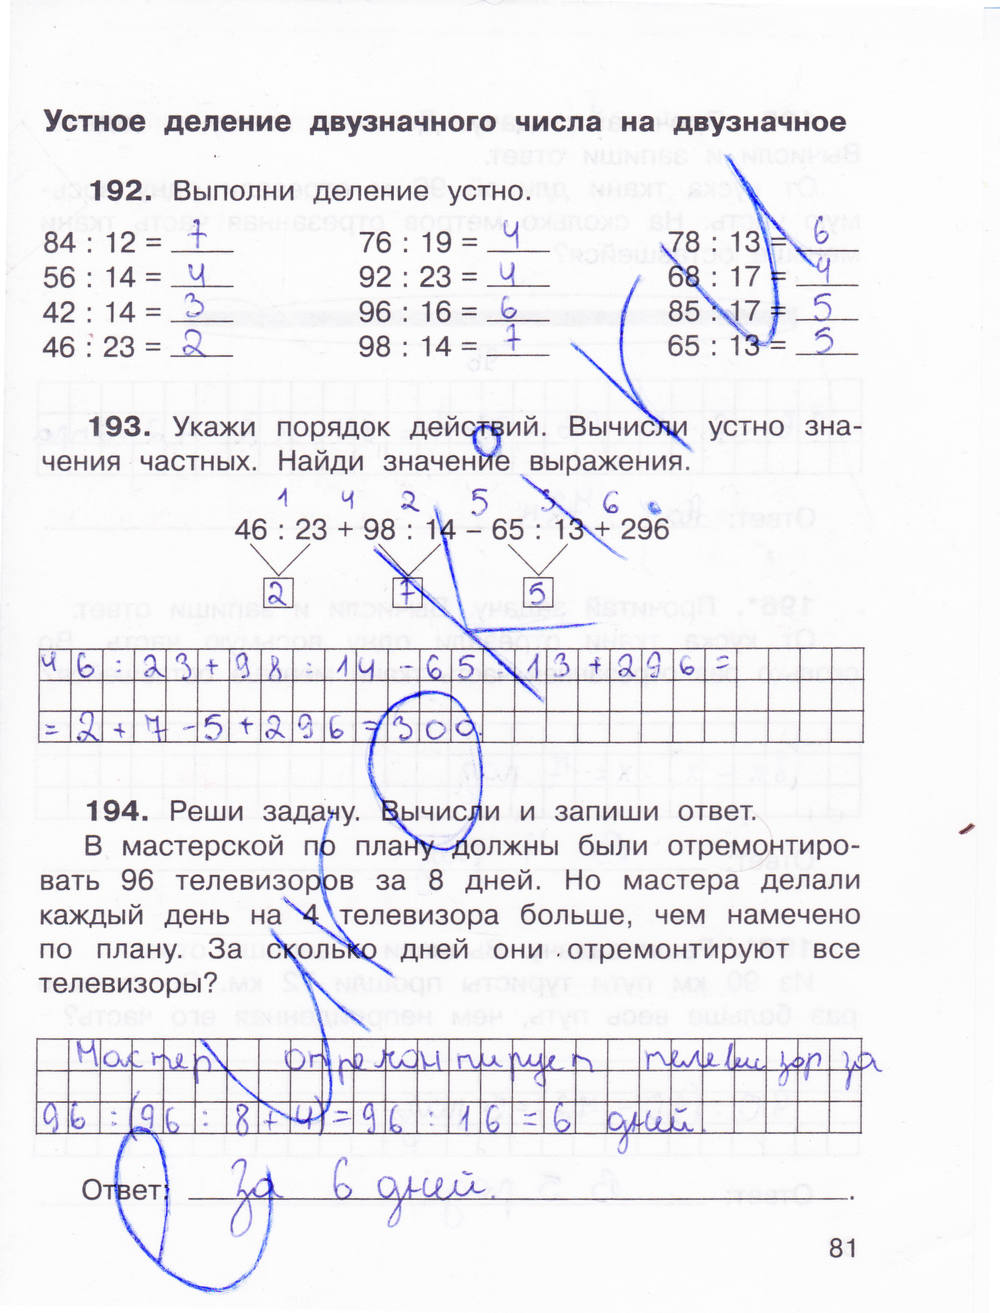 Устное деление двузначного числа на двузначное
192. Выполни деление устно.
84 : 12 = 7 76 : 19 = 4 78 : 13 = 6
56 : 14 = 4 92 : 23 = 4 68 : 17 = 4
42 : 14 = 3 96 : 16 = 6 85 : 17 = 5
46 : 23 = 2 98 : 14 = 7 65 : 13 = 5
193. Укажи порядок действий. Вычисли устно зна-
чения частных. Найди значение выражения.
1 4 2 5 3 6
46 : 23 + 98 : 14 – 65 : 13 + 296
2 7 5
46 : 23 + 98 : 14 - 65 : 13 + 296 =
= 2 + 7 - 5 + 296 = 300
194. Реши задачу. Вычисли и запиши ответ.
В мастерской по плану должны были отремонтиро-
вать 96 телевизоров за 8 дней. Но мастера делали
каждый день на 4 телевизора больше, чем намечено
по плану. За сколько дней они отремонтируют все
телевизоры?
Мастер отремонтирует телевизор за
96 : (96 : 8 + 4) = 96 : 16 = 6 дней.
Ответ: За 6 дней.
81